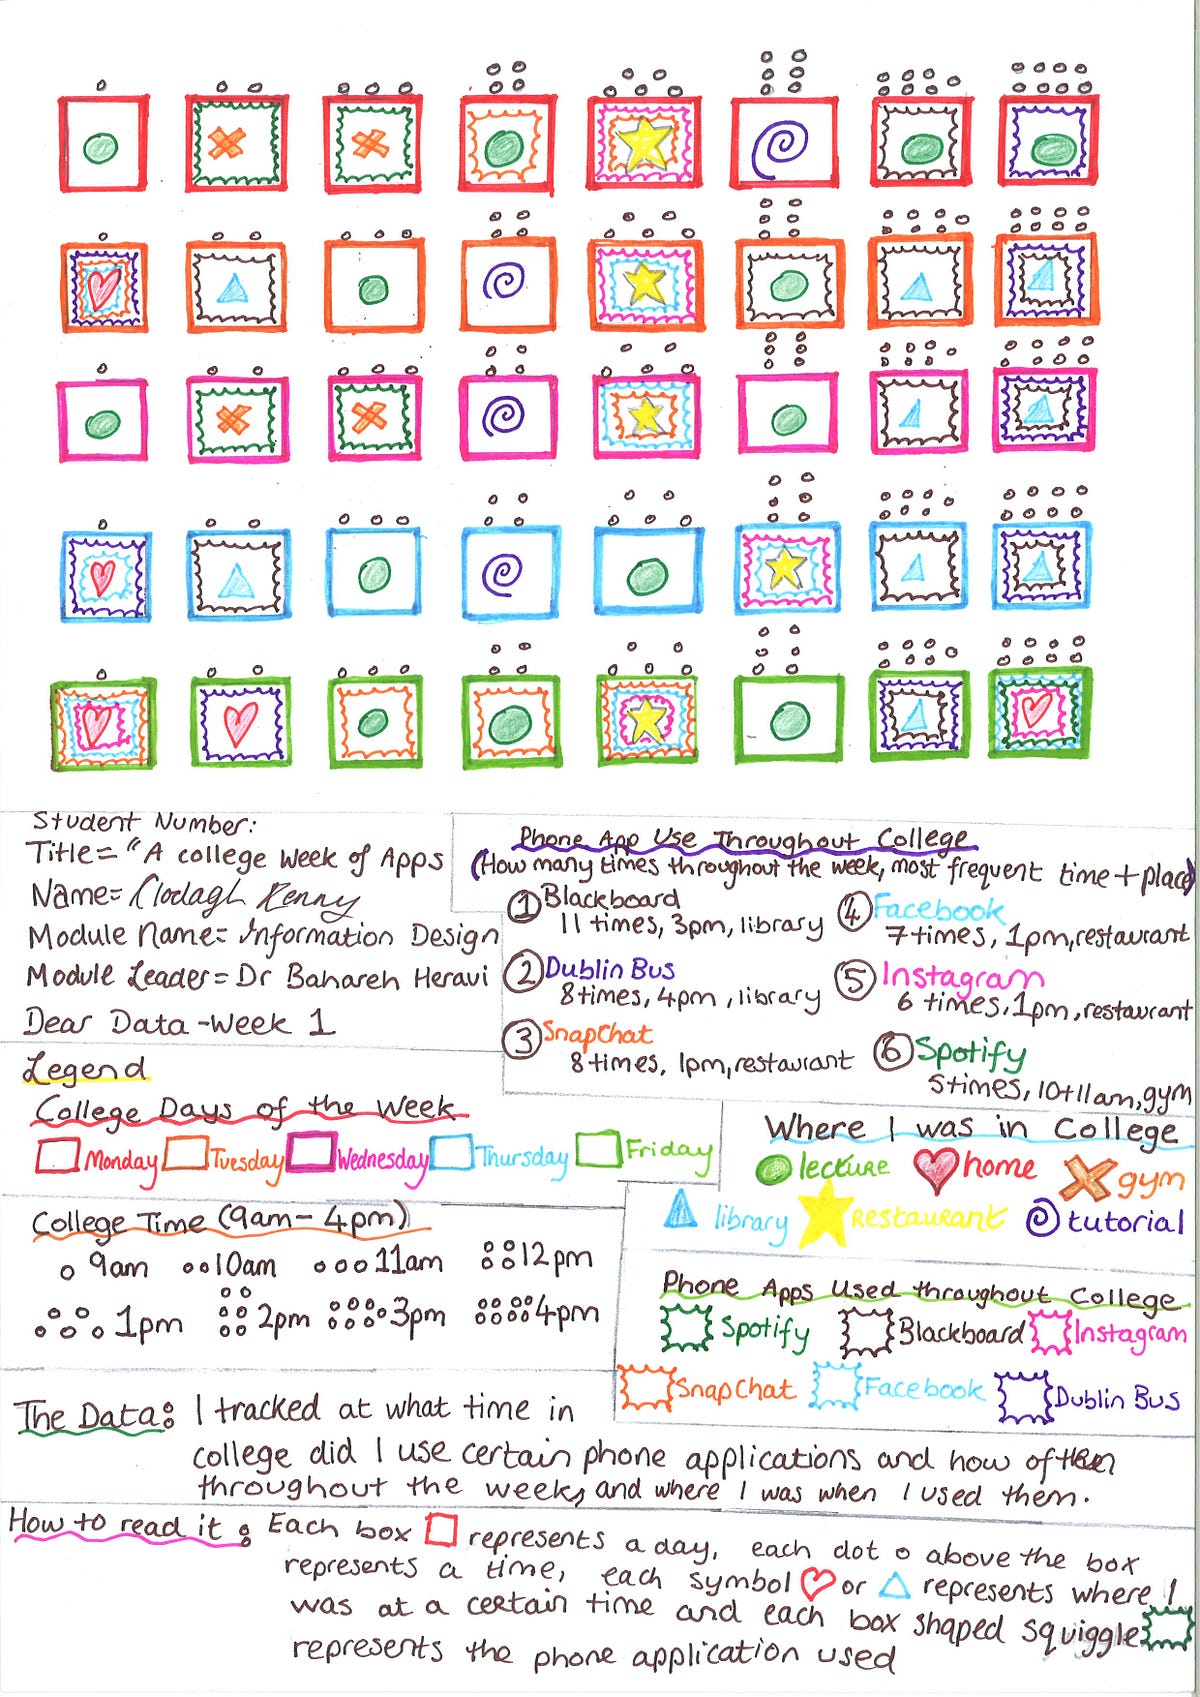 Student Number:
Title= "A college week of Apps
Name= Clodagh Kenny
Module Name= Information Design
Module Leader= Dr Bahareh Heravi
Dear Data -Week 1
Phone App Use Throughout College
(How many times throughout the week, most frequent time + place)
① Blackboard
11 times, 3pm, library
② Dublin Bus
8times, 4pm, library
③ SnapChat
8 times, 1pm, restaurant
④ Facebook
7times, 1pm, restaurant
⑤ Instagram
6 times, 1pm, restaurant
⑥ Spotify
5times, 10+11am, gym
Legend
College Days of the Week
Monday Tuesday Wednesday Thursday Friday
Where I was in College
lecture home gym
library Restaurant tutorial
College Time (9am- 4pm)
9am 10am 11am 12pm
1pm 2pm 3pm 4pm
Phone Apps Used throughout College
Spotify Blackboard Instagram
SnapChat Facebook Dublin Bus
The Data: I tracked at what time in
college did I use certain phone applications and how often
throughout the week, and where I was when I used them.
How to read it: Each box represents a day, each dot o above the box
represents a time, each symbol or represents where I
was at a certain time and each box shaped squiggle
represents the phone application used